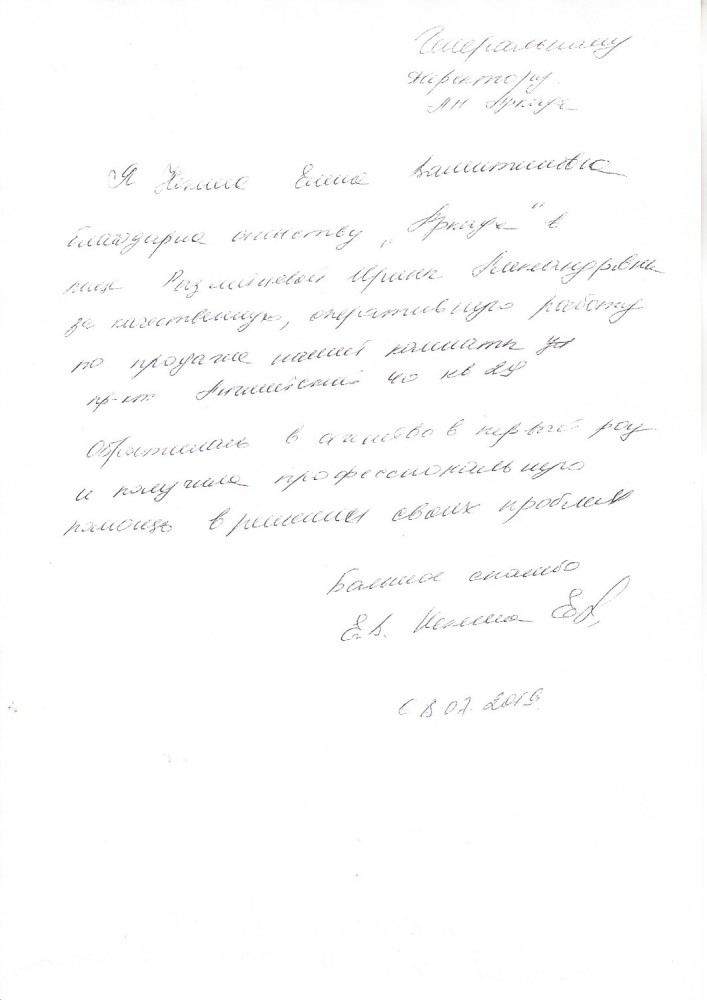 Генеральному
директору
АН Аркада
Я Елена Валентиновна
благодарна агенству „Аркада“ в
лице Ирины Александровны
за качественную, оперативную работу
по продаже нашей комнаты
пр-кт Английский 40 кв 29
Обратилась в агенство в первый раз
и получила профессиональную
помощь в решении своих проблем
Большое спасибо
Е.В.
07.2019